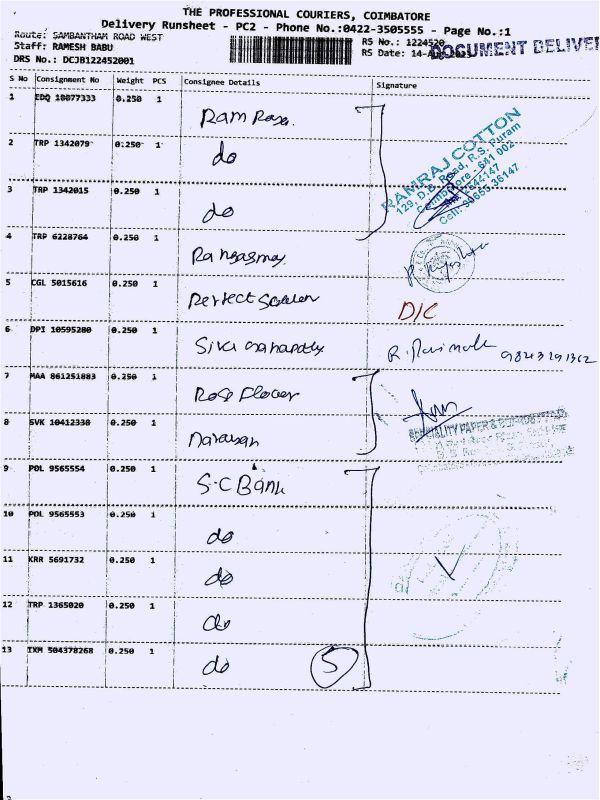 THE PROFESSIONAL COURIERS, COIMBATORE
Delivery Runsheet - PC2 - Phone No.:0422-3505555 - Page No.:1
Route: SAMBANTHAM ROAD WEST
Staff: RAMESH BABU
DRS No.: DCJB122452001
RS No.: 1224520
RS Date: 14-
DOCUMENT DELIVER
S No Consignment No Weight PCS Consignee Details Signature
1 EDQ 10077333 0.250 1 Ram Raja.
2 TRP 1342079 0.250 1 do
3 TRP 1342015 0.250 1 do
RAMRAJ COTTON
129, D.B. Road, R.S. Puram
Coimbatore - 641 002
Cell: 93655 36147
4 TRP 6228764 0.250 1
5 CGL 5015616 0.250 1 Perfect D/C
6 DPI 10595280 0.250 1 Siva
7 MAA 861251883 0.250 1 Rose Flower
8 SVK 10412330 0.250 1 Narayan
SPECIALITY PAPER &
9 POL 9565554 0.250 1 S.C Bank
10 POL 9565553 0.250 1 do
11 KRR 5691732 0.250 1 do
12 TRP 1365020 0.250 1 do
13 IXM 504378268 0.250 1 do 5